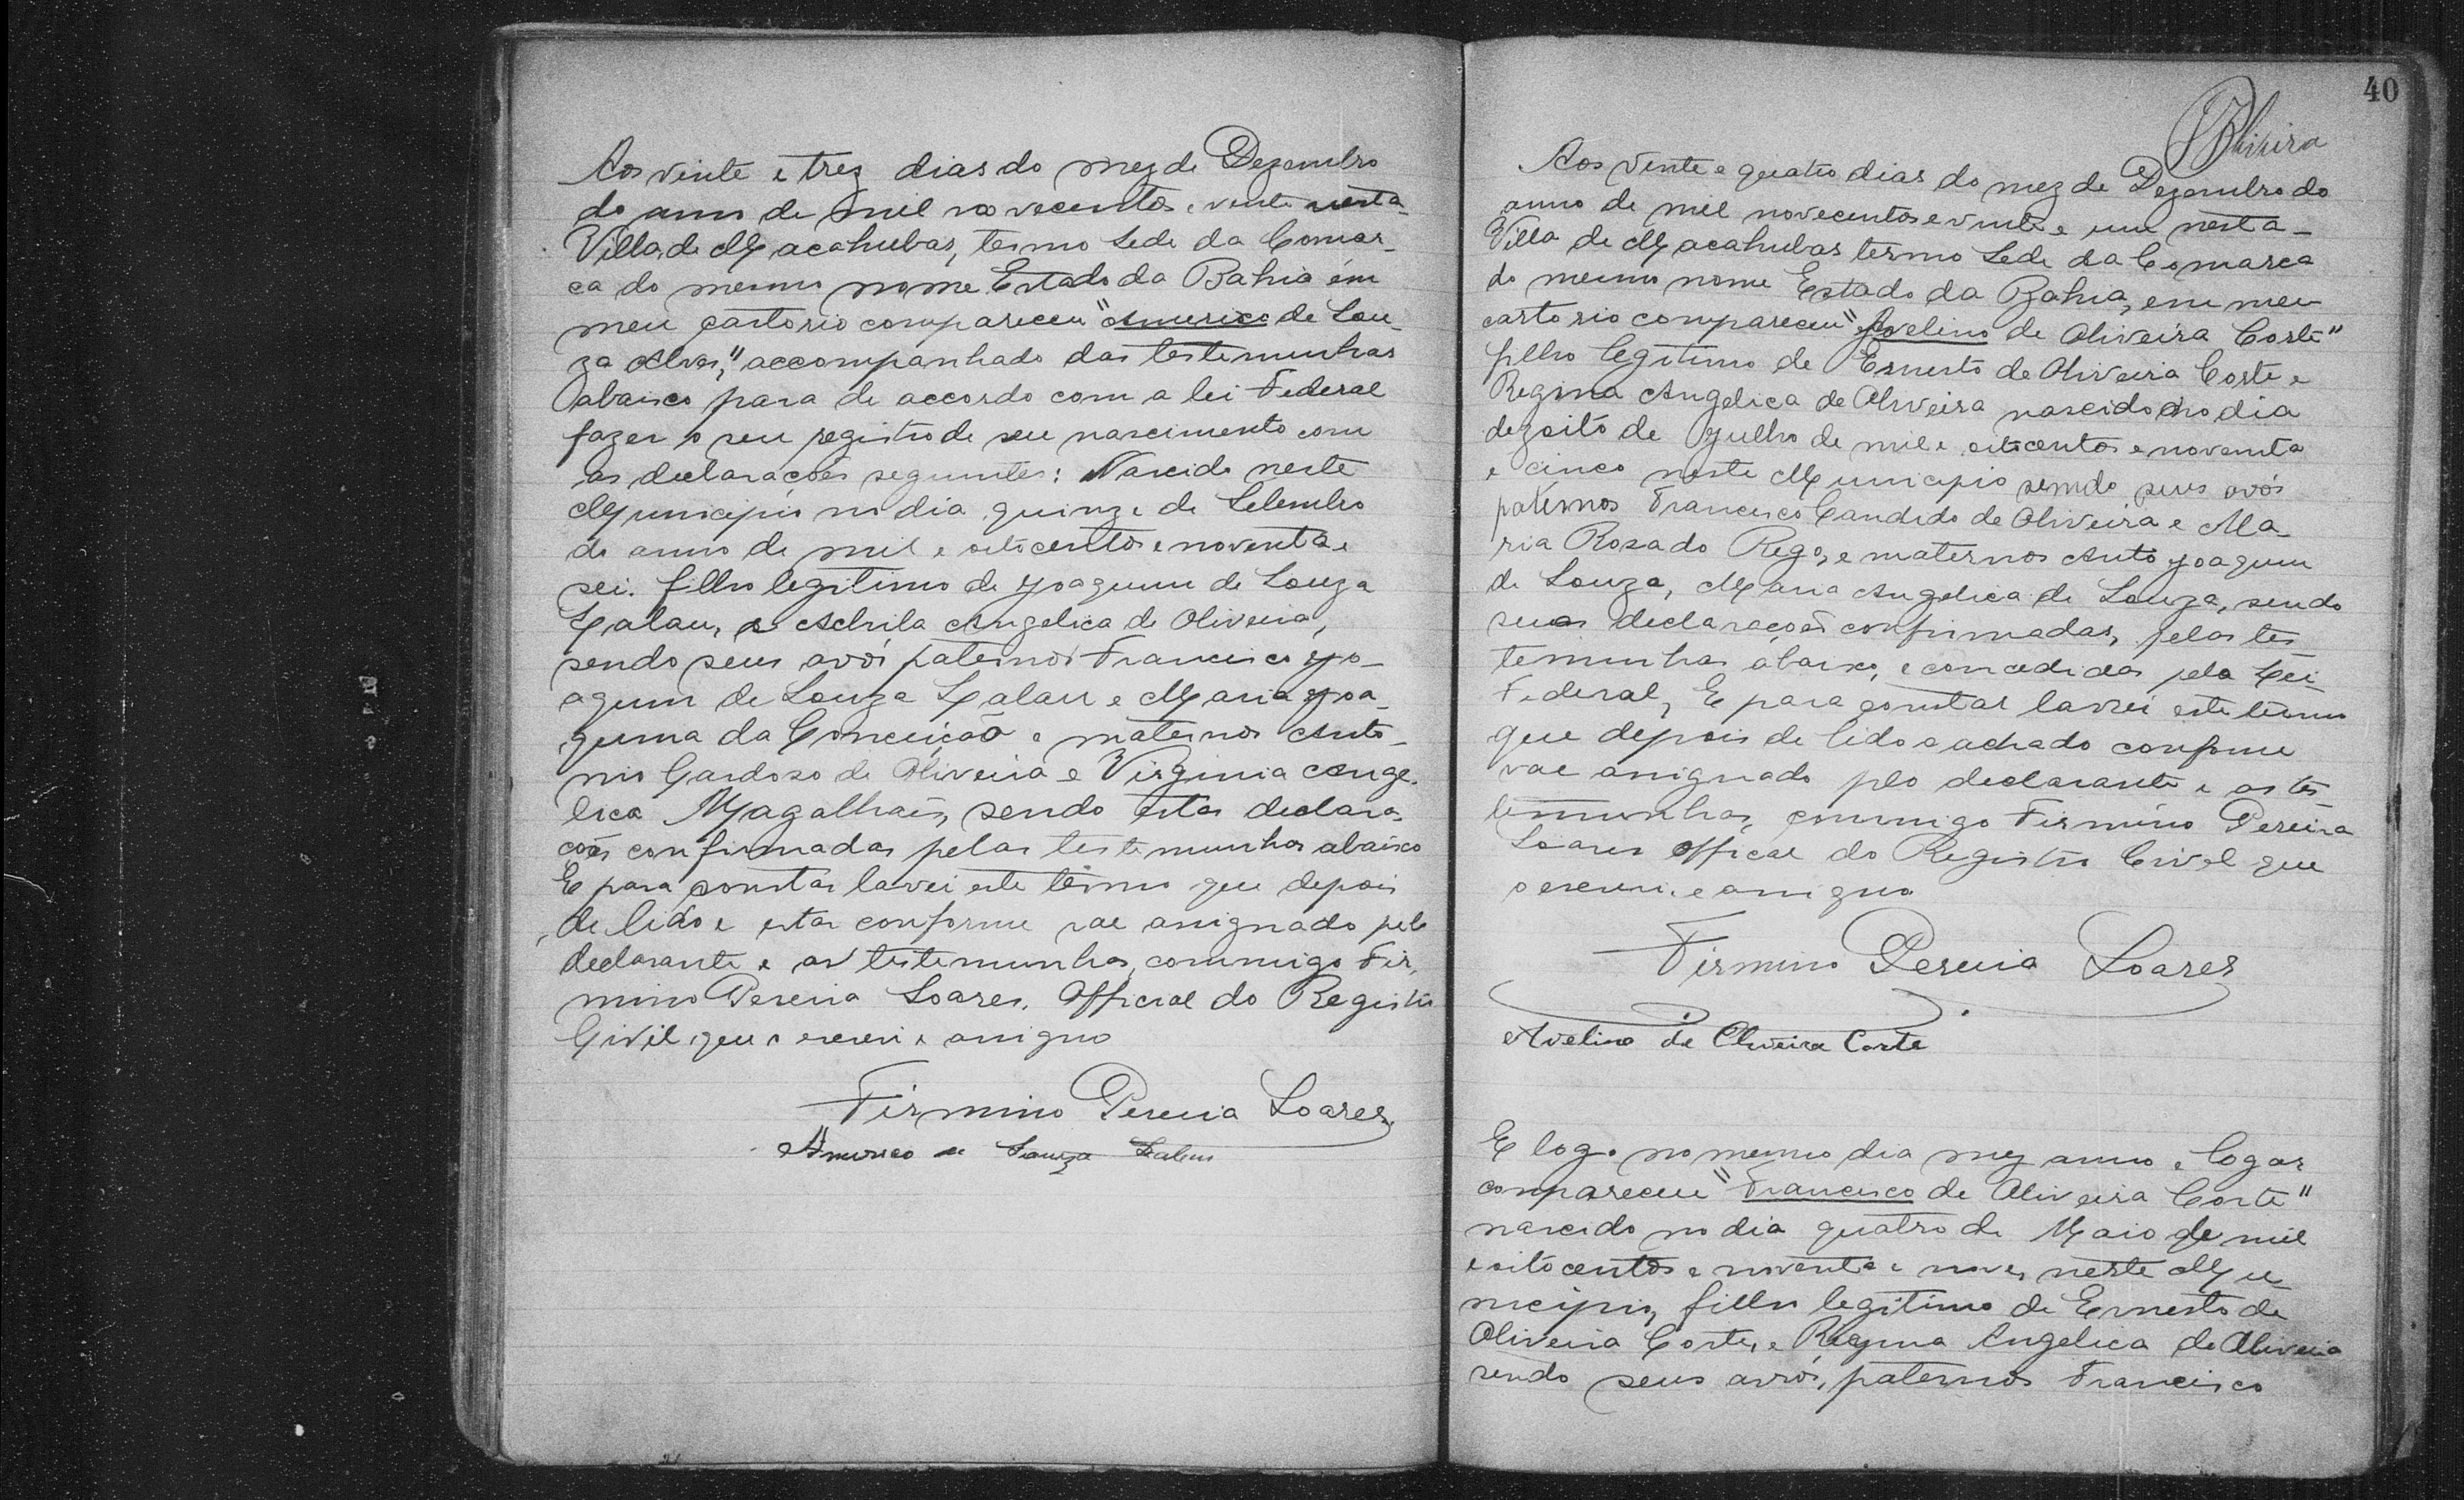 Aos vinte e trez dias do mez de Dezembro
do anno de mil novecentos e vinte nesta
Villa de Macahubas, termo Sede da Comar-
ca do mesmo nome Estado da Bahia em
meu cartorio compareceu "Americo de Sou-
za Alves," accompanhado das testemunhas
abaixo para de accordo com a lei Federal
fazer o seu registro de seu nascimento com
as declarações seguintes: Nascido neste
Municipio no dia quinze de Setembro
do anno de mil e oitocentos e noventa e
seis filho legitimo de Joaquim de Souza
Lalau, e Angelica de Oliveira,
sendo seus avós paternos Francisco Jo-
aquim de Souza Lalau e Maria Joa-
quina da Conceição e maternos Anto-
nio Cardoso de Oliveira e Virginia Ange-
lica Magalhaes, sendo estas declara-
cões confirmadas pelas testemunhas abaixo
E para constar lavrei este termo que depois
de lido e estar conforme vae assignado pelo
declarante e as testemunhas, commigo Fir-
mino Pereira Soares, Official do Registro
Civil que o escrevi e assigno
Firmino Pereira Soares
Americo de Souza Lalau
40
Aos vinte e quatro dias do mez de Dezembro do
anno de mil novecentos e vinte e um nesta-
Villa de Macahubas termo Sede da Comarca
do mesmo nome Estado da Bahia, em meu
cartorio compareceu "Avelino de Oliveira Corte"
filho legitimo de Ernesto de Oliveira Corte e
Regina Angelica de Oliveira nascido no dia
dezoito de Julho de mil e oitocentos e noventa
e cinco neste Municipio sendo seus avós
paternos Francisco Candido de Oliveira e Ma-
ria Rosa do Rego, e maternos Anto Joaquim
de Souza, Maria Angelica de Souza, sendo
suas declaraçoes confirmadas, pelas tes
temunhas abaixo, e concedidas pela Lei
Federal, E para constar lavrei este termo
que depois de lido e achado conforme
vae assignado pelo declarante e as tes
temunhas, commigo Firmino Pereira
Soares Official do Registro Civel que
o escrevi e assigno
Firmino Pereira Soares
Avelino de Oliveira Corte
E logo no mesmo dia mez anno e logar
compareceu "Francisco de Oliveira Corte"
nascido no dia quatro de Maio de mil
e oitocentos e noventa e nove, neste Mu
nicipio, filho legitimo de Ernesto de
Oliveira Corte, e Regina Angelica de Oliveira
sendo seus avós, paternos Francisco